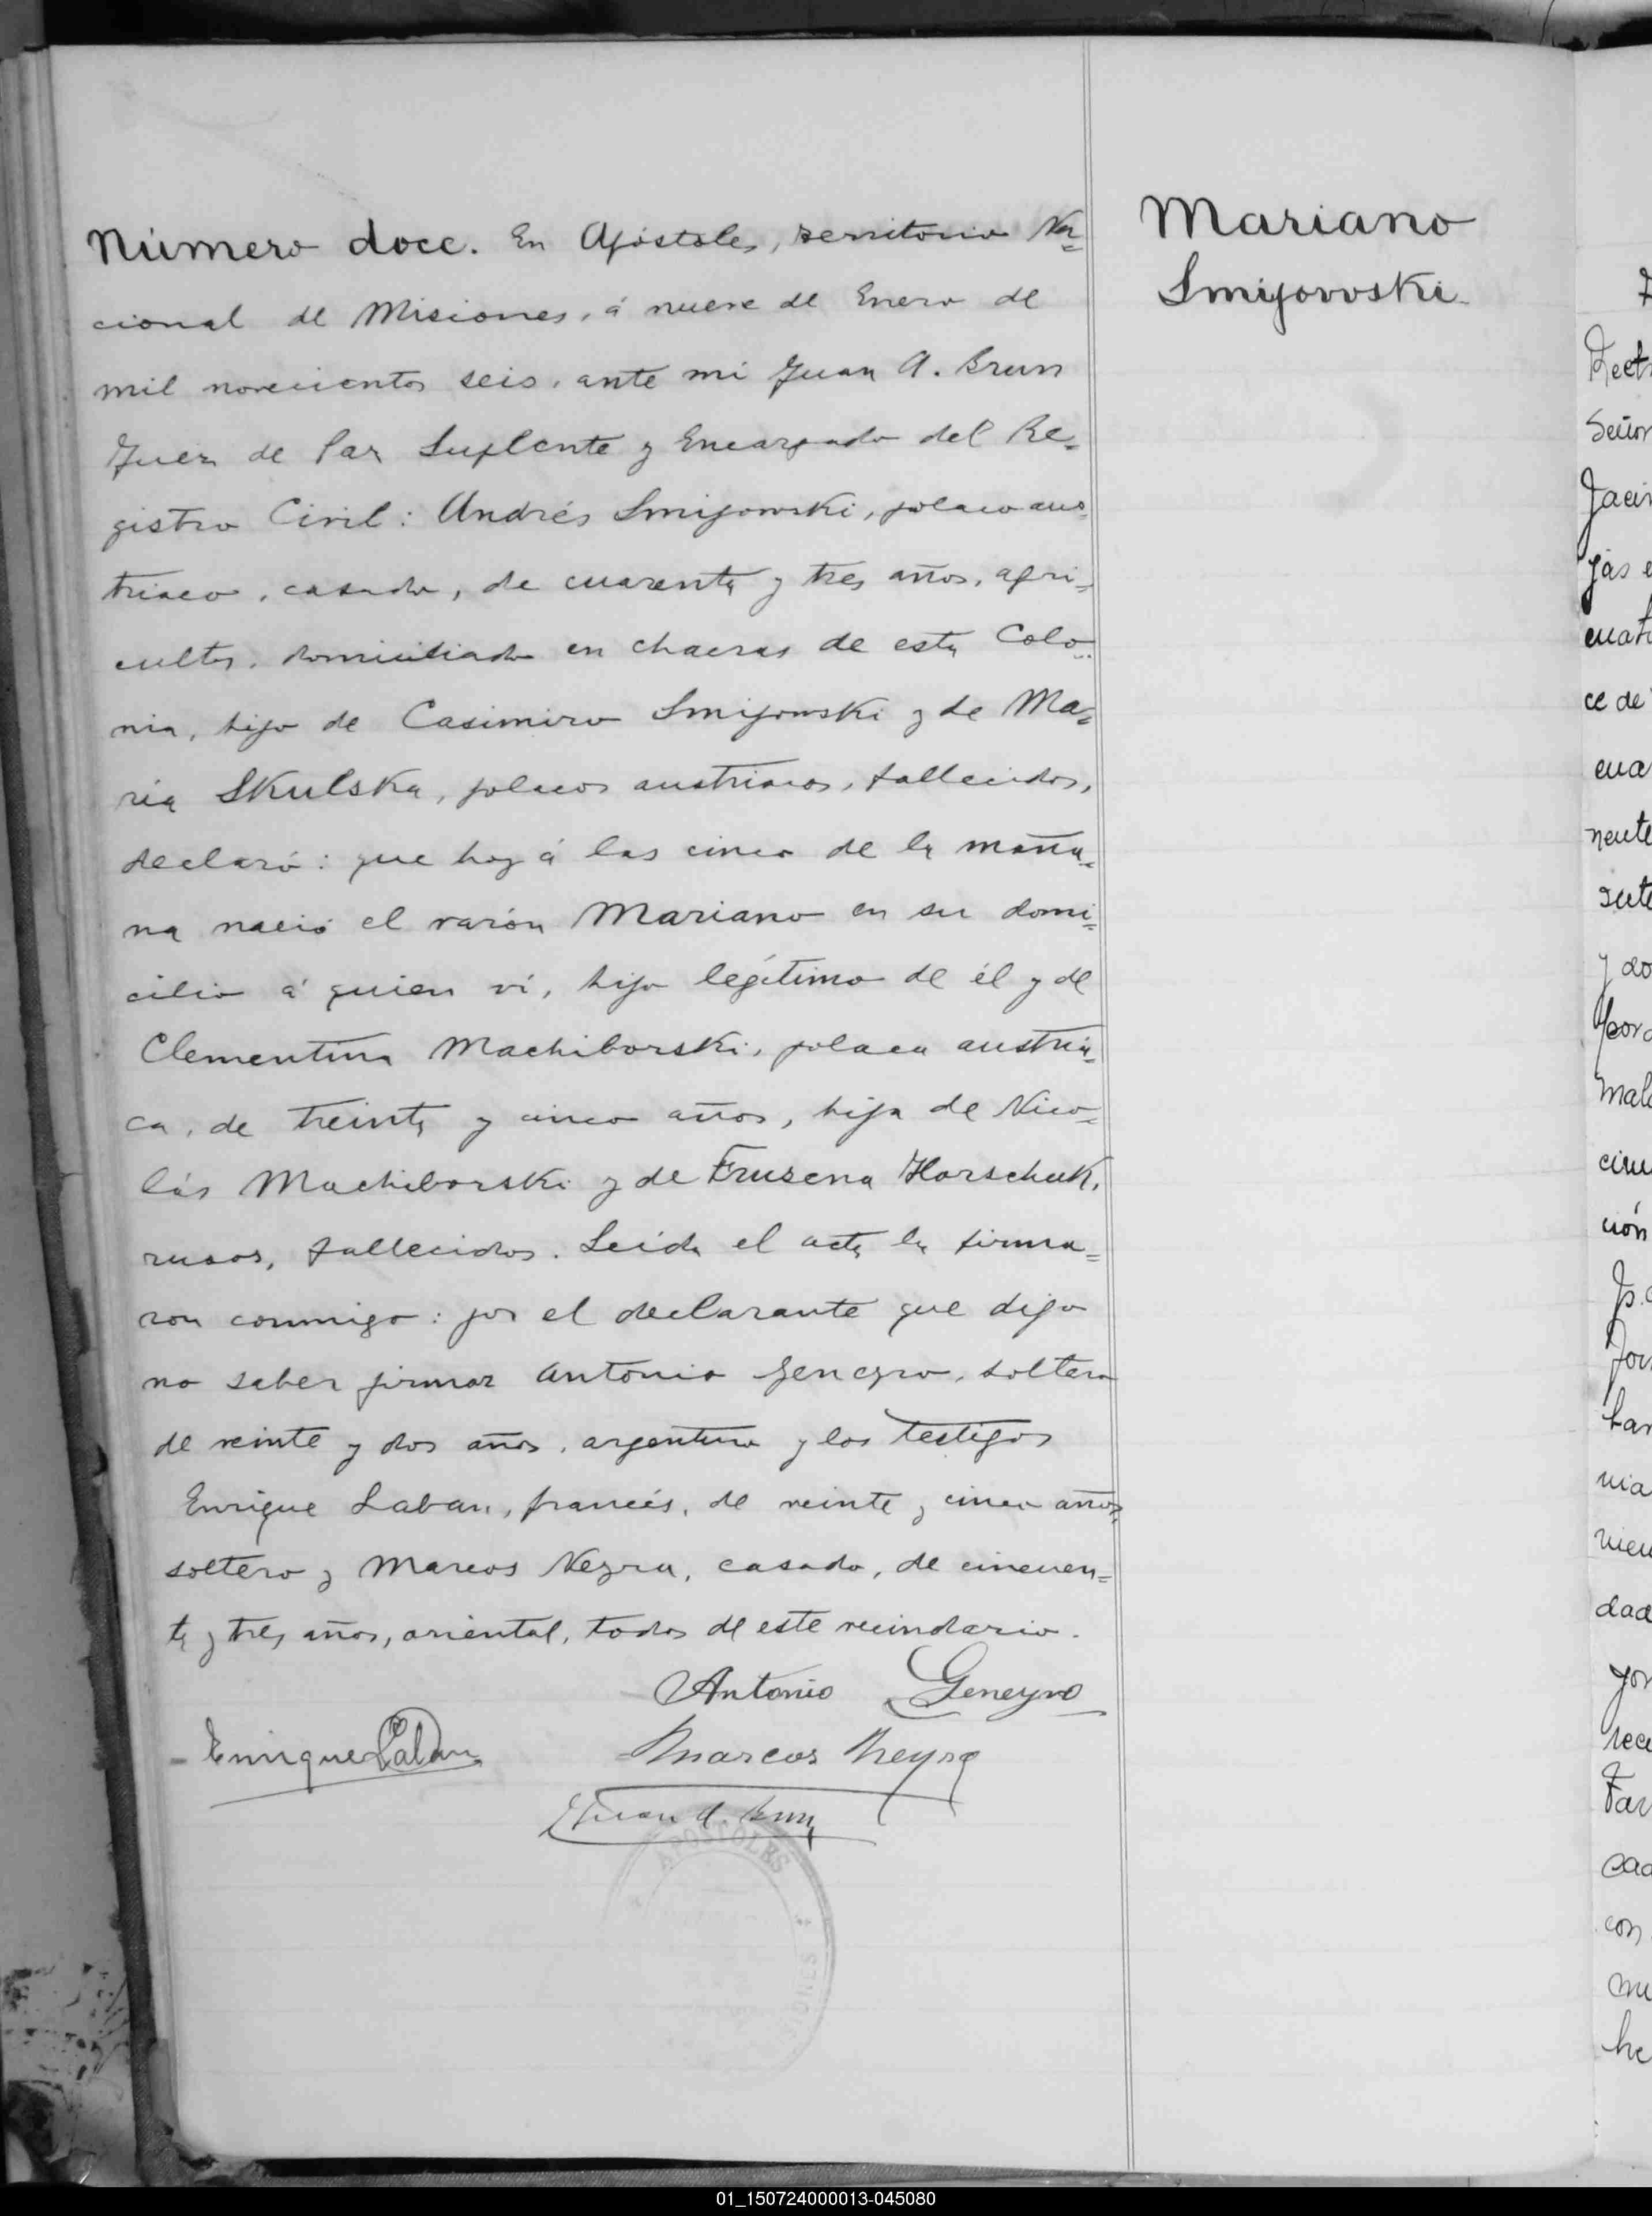 Número doce. En Apóstoles, territorio Na=
cional de Misiones, á nueve de Enero de
mil novecientos seis, ante mi Juan A. Brun
Juez de Paz Suplente y Encargado del Re=
gistro Civil: Andrés Smijowski, polaco aus=
triaco, casado, de cuarenta y tres años, agri=
cultor, domiciliado en chacras de esta Colo=
nia, hijo de Casimiro Smijowski y de Ma=
ria Skulska, polacos austriacos, fallecidos,
declaró: que hoy á las cinco de la maña=
na nació el varón Mariano en su domi=
cilio á quien ví, hijo legítimo de él y de
Clementina Machiborski, polaca austria=
ca, de treinta y cinco años, hija de Nico=
lás Machiborski y de Frusena Horschuk,
rusos, fallecidos. Leida el acta la firma=
ron conmigo: por el declarante que dijo
no saber firmar Antonio Geneyro, soltero
de veinte y dos años, argentino y los testigos
Enrique Laban, francés, de veinte y cinco años,
soltero y Marcos Neyra, casado, de cincuen=
ta y tres años, oriental, todos de este vecindario.
Antonio Geneyro
Enrique Laban
Marcos Neyra
Juan A. Brun
APOSTOLES
MISIONES
Mariano
Smijovoski
Rect
Señor
Jacin
jas e
cuat
ce de
cua
nente
y do
por
mal
ción
nia
dad
por
rece
con
he
01_150724000013-045080